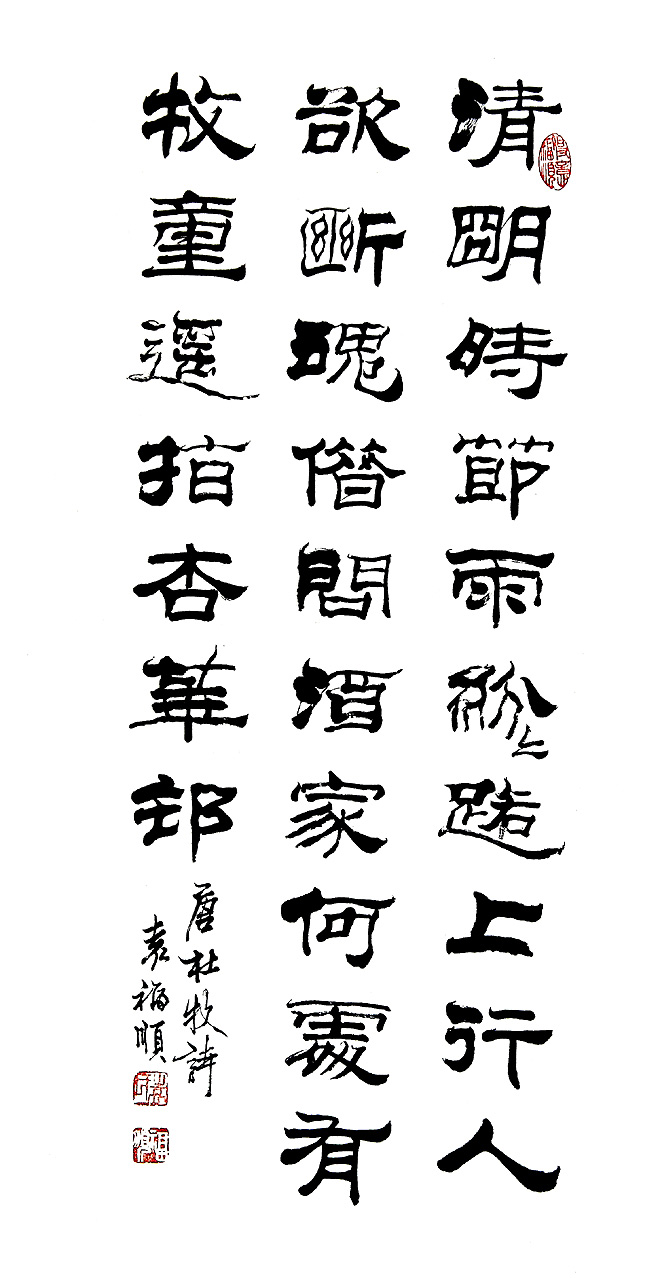 清明時節雨紛〻路上行人
欲斷魂借問酒家何處有
牧童遥指杏華邨
唐杜牧詩
袁福順